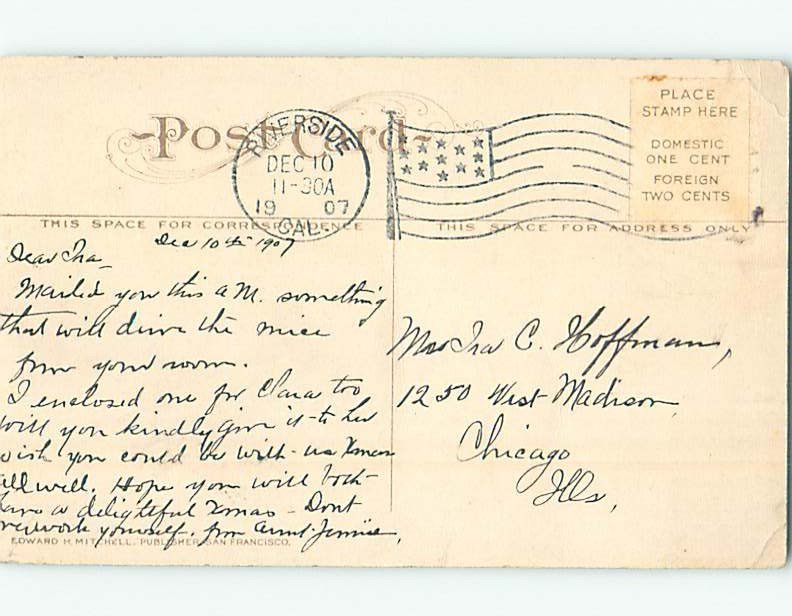 Post Card
RIVERSIDE
DEC 10
11-30A
1907
CAL.
PLACE
STAMP HERE
DOMESTIC
ONE CENT
FOREIGN
TWO CENTS
THIS SPACE FOR CORRESPONDENCE
THIS SPACE FOR ADDRESS ONLY
Dec 10th 1907
Dear Ira_
Mailed you this a M. something
that will drive the mice
from your room.
I enclosed one for Clara too
will you kindly give it to her
wish you could be with us Xmas
all well. Hope you will both
have a delightful Xmas - Dont
overwork yourself. from Aunt Jennie,
EDWARD H. MITCHELL, PUBLISHER, SAN FRANCISCO.
Ira C. Hoffman,
1250 West Madison,
Chicago
Ills,